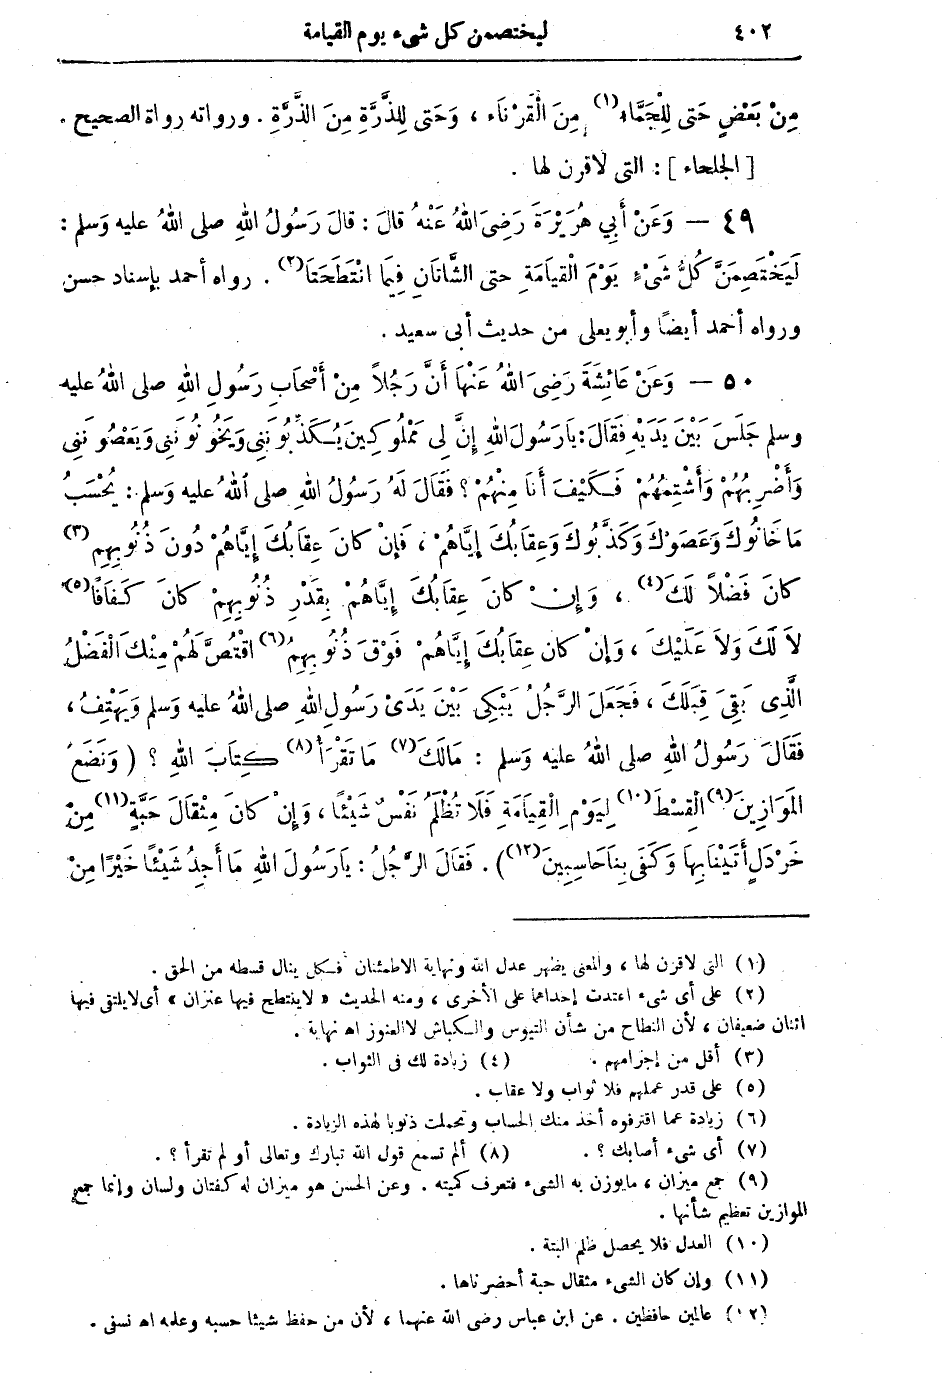 ٤٠٢ ليختصمن كل شىء يوم القيامة
مِنْ بَعْضٍ حَتى لِلْجَمَّاءِ (١) مِنَ الْقَرْنَاءِ ، وَحَتى لِلذَّرَّةِ مِنَ الذَّرَّةِ . ورواته رواة الصحيح .
[ الجلحاء ] : التى لاقرن لها .
٤٩ — وَعَنْ أَبِي هُرَيْرَةَ رَضِىَ اللهُ عَنْهُ قالَ : قالَ رَسُولُ اللهِ صلى اللهُ عليه وَسلم :
لَيَخْتَصِمَنَّ كُلُّ شَىْءٍ يَوْمَ الْقيَامَةِ حتى الشَّاتَانِ فِيمَا انْتَطَحَتَا (٢) . رواه أحمد بإسناد حسن
ورواه أحمد أيضًا وأبو يعلى من حديث أبى سعيد .
٥٠ — وَعَنْ عَائِشَةَ رَضِىَ اللهُ عَنْهَا أَنَّ رَجُلاً مِنْ أَصْحَابِ رَسُولِ اللهِ صلى اللهُ عليه
وسلم جَلَسَ بَيْنَ يَدَيْهِ فَقَالَ : يَارَسُولَ اللهِ إِنَّ لِى مَمْلُوكِينَ يُكَذِّبُونَنِى وَيَخُونُونَنِى وَيَعْصُونَنِى
وَأَضْرِبُهُمْ وَأَشْتِمُهُمْ فَكَيْفَ أَنَا مِنْهُمْ ؟ فَقَالَ لَهُ رَسُولُ اللهِ صلى اللهُ عليه وَسلم : يُحْسَبُ
مَا خَانُوكَ وَعَصَوْكَ وَكَذَّبُوكَ وَعِقَابُكَ إِيَّاهُمْ ، فَإِنْ كانَ عِقَابُكَ إِيَّاهُمْ دُونَ ذُنُوبِهِمِ (٣)
كانَ فَضْلاً لَكَ (٤) ، وَإِنْ كانَ عِقَابُكَ إِيَّاهُمْ بِقَدْرِ ذُنُوبِهِمْ كانَ كَفَافًا (٥)
لاَ لَكَ وَلاَ عَلَيْكَ ، وَإِنْ كانَ عِقَابُكَ إِيَّاهُمْ فَوْقَ ذُنُوبِهِمُ (٦) اقْتُصَّ لَهُمْ مِنْكَ الْفَضْلُ
الَّذِى بَقِىَ قِبَلَكَ ، فَجَعَلَ الرَّجُلُ يَبْكِى بَيْنَ يَدَىْ رَسُولِ اللهِ صلى اللهُ عليه وَسلم وَيَهْتِفُ ،
فَقَالَ رَسُولُ اللهِ صلى اللهُ عليه وَسلم : مَالَكَ (٧) مَا تَقْرَأُ (٨) كِتَابَ اللهِ ؟ ( وَنَضَعُ
المَوَازِينَ (٩) الْقِسْطَ (١٠) لِيَوْمِ الْقِيَامَةِ فَلاَ تُظْلَمُ نَفْسٌ شَيْئًا ، وَإِنْ كانَ مِثْقَالَ حَبَّةٍ (١١) مِنْ
خَرْدَلٍ أَتَيْنَا بِهَا وَكَفَى بِنَا حَاسِبِينَ (١٢) ) . فَقَالَ الرَّجُلُ : يَارَسُولَ اللهِ مَا أَجِدُ شَيْئًا خَيْرًا مِنْ
(١) التى لاقرن لها ، والمعنى يظهر عدل الله ونهاية الاطمئنان فكل ينال قسطه من الحق .
(٢) على أى شىء اعتدت إحداهما على الأخرى ، ومنه الحديث « لاينتطح فيها عنزان » أى لايلتقى فيها
اثنان ضعيفان ، لأن النطاح من شأن التيوس والكباش لا العنوز اهـ نهاية .
(٣) أقل من إجرامهم . (٤) زيادة لك فى الثواب .
(٥) على قدر عملهم فلا ثواب ولا عقاب .
(٦) زيادة عما اقترفوه أخذ منك الحساب وتحملت ذنوبا لهذه الزيادة .
(٧) أى شىء أصابك ؟ . (٨) ألم تسمع قول الله تبارك وتعالى أو لم تقرأ ؟ .
(٩) جمع ميزان ، مايوزن به الشىء فتعرف كميته . وعن الحسن هو ميزان له كفتان ولسان وإنما جمع
الموازين تعظيم شأنها .
(١٠) العدل فلا يحصل ظلم البتة .
(١١) وإن كان الشىء مثقال حبة أحضرناها .
(١٢) عالمين حافظين . عن ابن عباس رضى الله عنهما ، لأن من حفظ شيئا حسبه وعلمه اهـ نسفى .